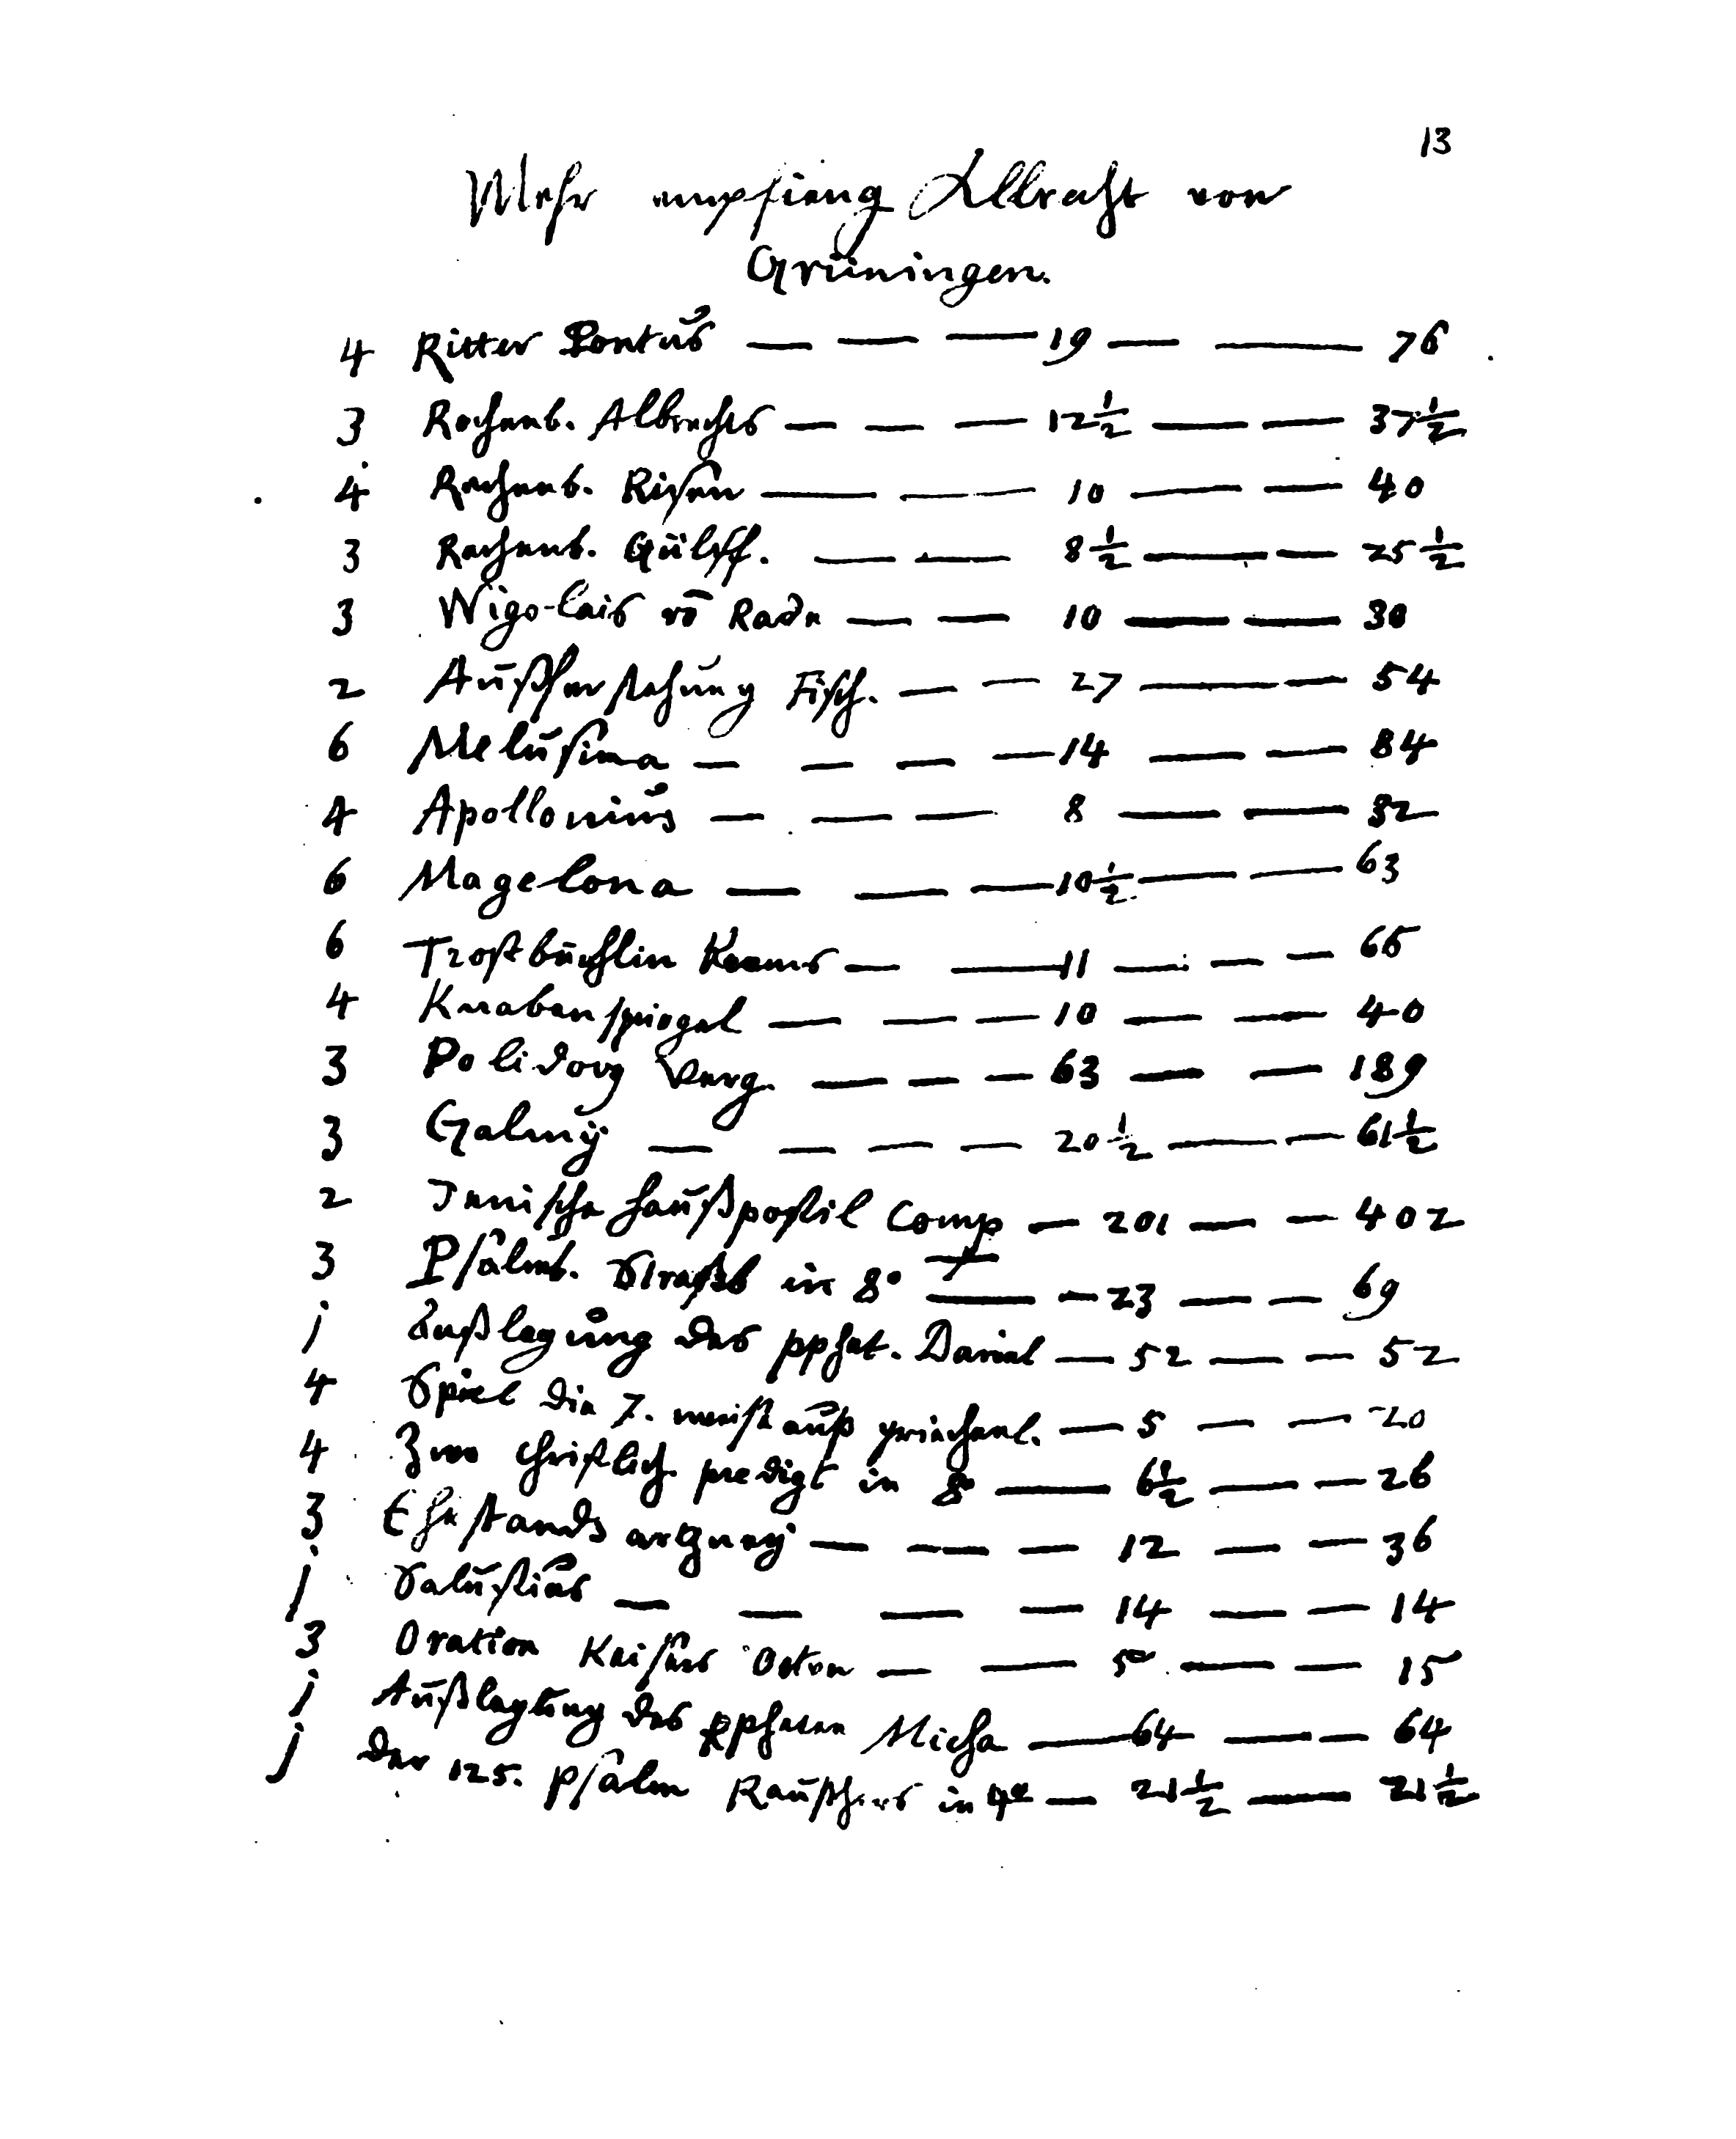 13
Mehr empfieng Albrecht von
Grüningen.
4 Ritter Pontus — — — 19 — — 76
3 Rechenb. Albrechts — — — 12½ — — 37½
4 Rechenb. Risen — — — 10 — — 40
3 Rechenb. Gülff. — — 8½ — — 25½
3 Wigo-lais vō Rade — — 10 — — 30
2 Aufferstehung Fisch. — — 27 — — 54
6 Melusina — — — — 14 — — 84
4 Apollonius — — — 8 — — 32
6 Magelona — — — 10½ — — 63
6 Trostbüchlin Kegels — — 11 — — — 66
4 Knabenspiegel — — — 10 — — 40
3 Polidory Verg. — — — 63 — — 189
3 Galmÿ — — — — 20½ — — 61½
2 Jenische Haußpostil Comp — 201 — — 402
3 Psalmb. Straßb in 8° — — 23 — — 69
j Außlegung des pphet. Daniel — 52 — — 52
4 Spiel die 7. weiß auß griechenl. — 5 — — 20
4 Zwo christlich predigt in 8° — 6½ — — 26
3 Ehestands artzney — — — 12 — — 36
j Salustius — — — — 14 — — 14
3 Oration Keisers Oeten — — 5 — — 15
j Außlegung des ppheten Micha — 64 — — 64
j der 125. psalm Rauschers in 4° — 21½ — 21½